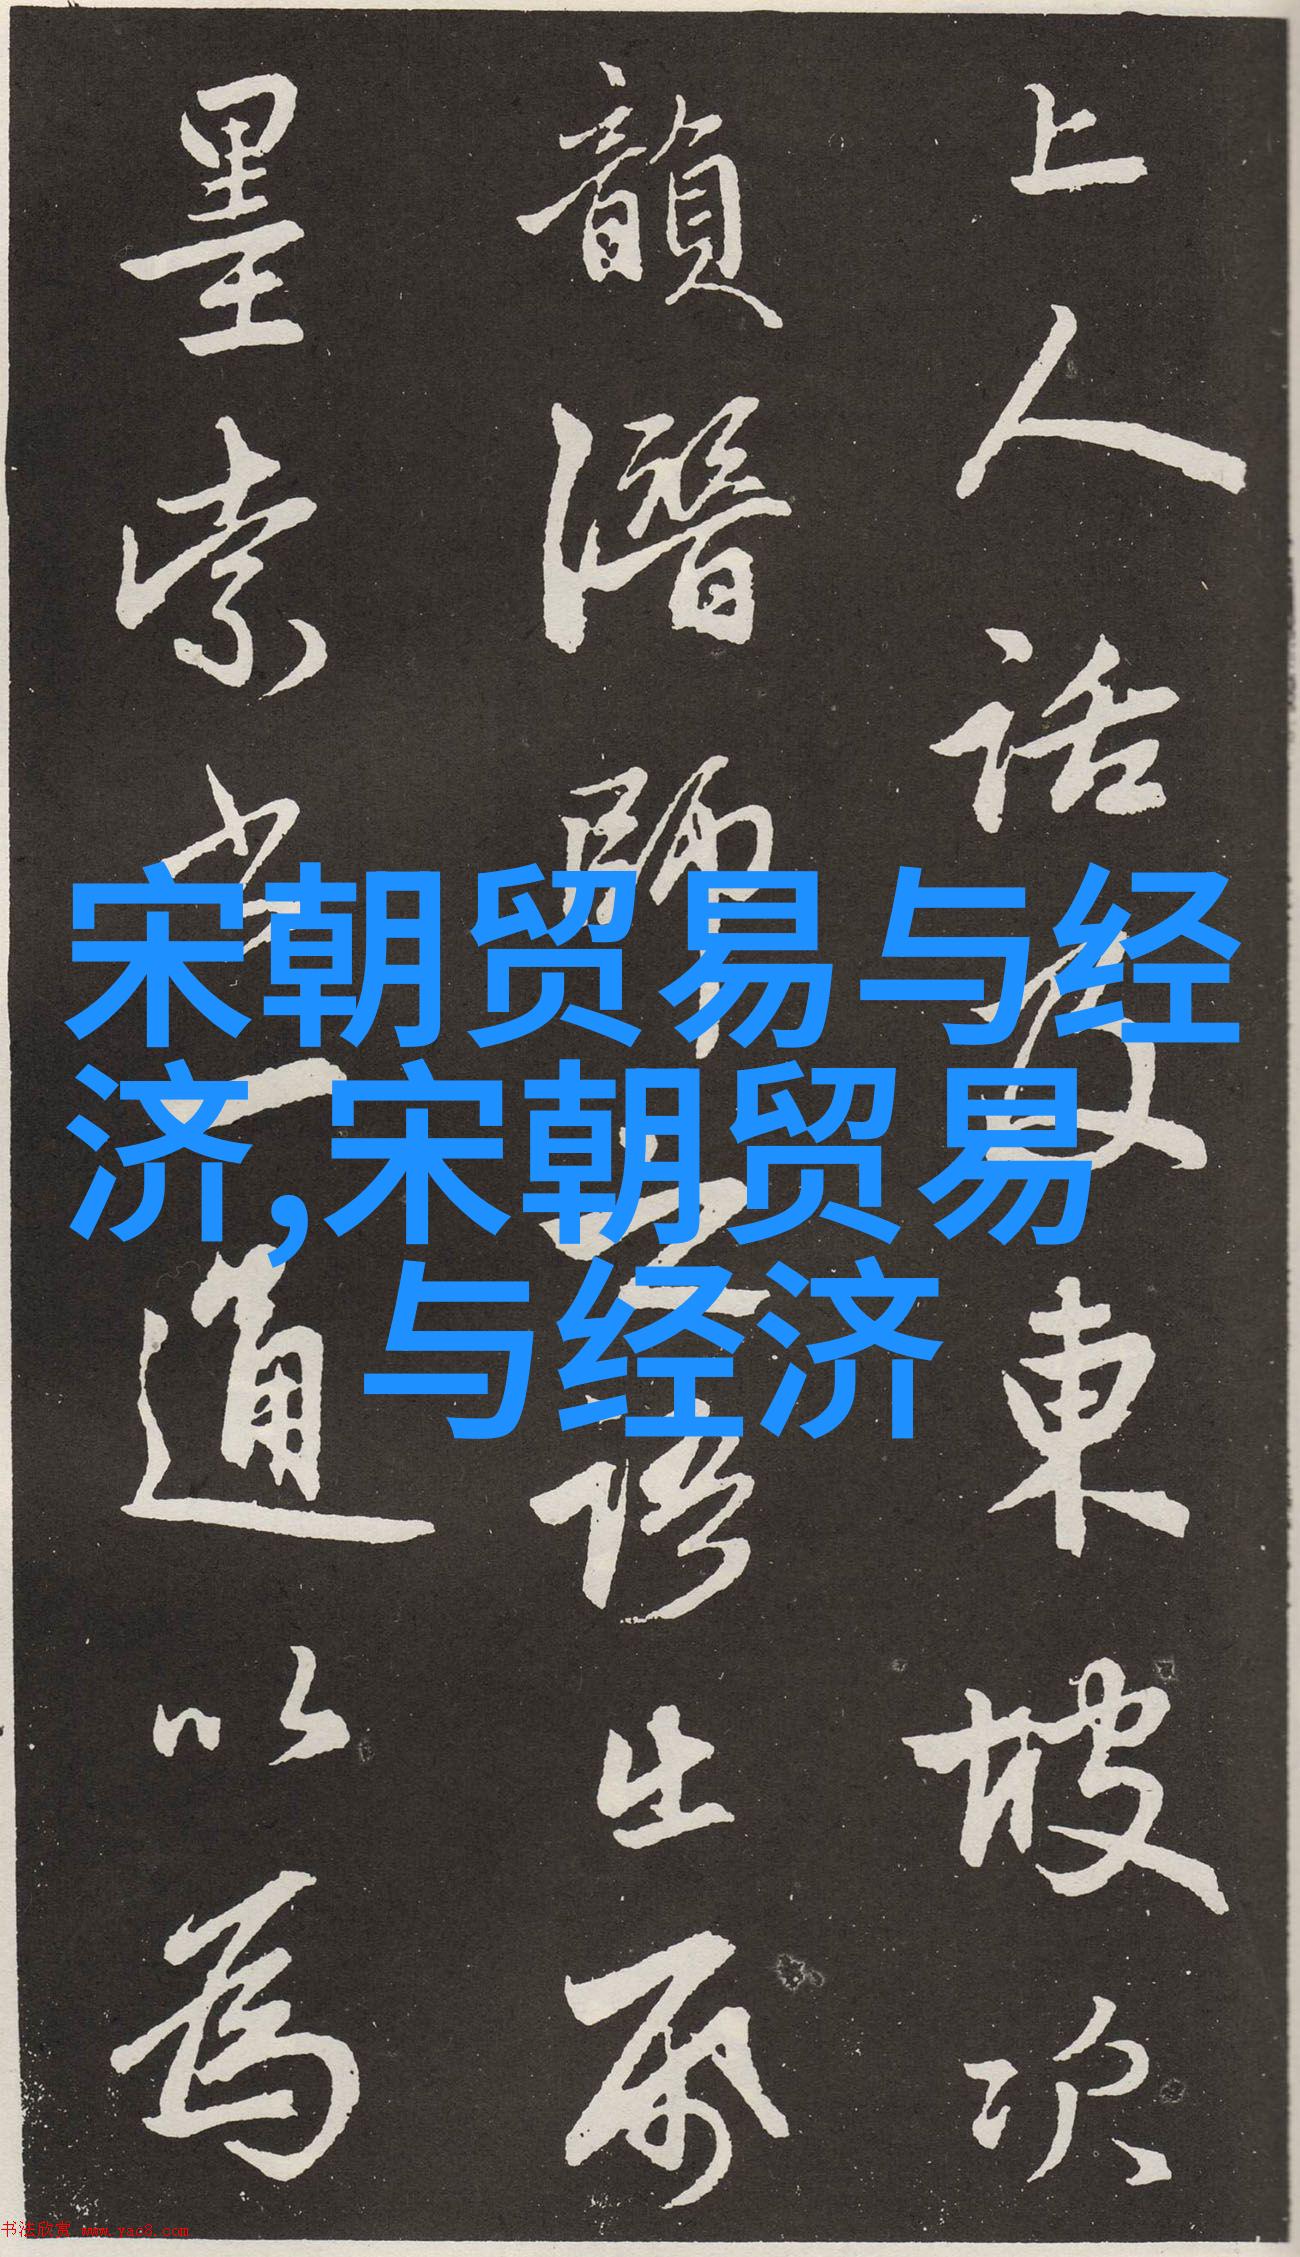 上人話及東坡次
韻潛師
語生厭
墨索書
遺以為
宋朝贸易与经
济,宋朝贸易
与经济
书法欣赏 www.yac8.com